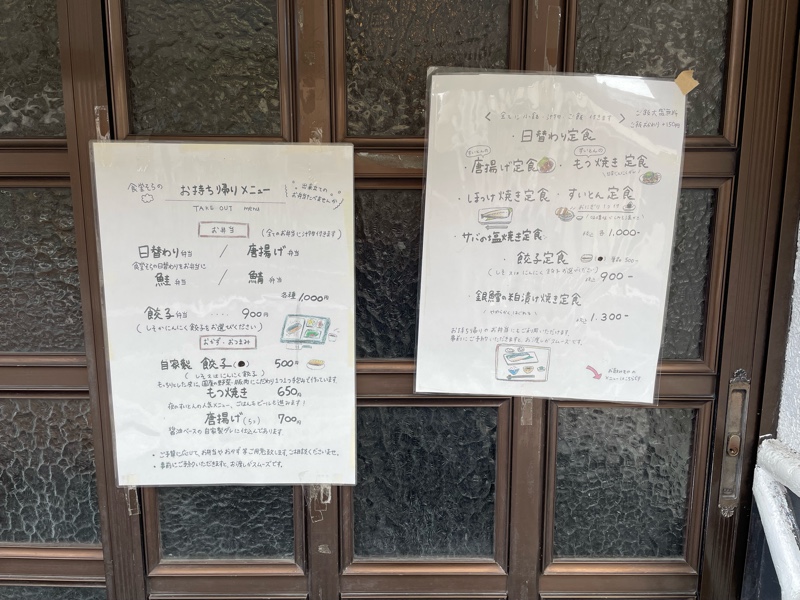 食堂そらの
お持ち帰りメニュー
TAKE OUT menu
出来立ての
お弁当
日替わり弁当 / 唐揚げ弁当
食堂そらの日替わりをお弁当に
鮭弁当 / 鯖弁当
各種 1000円
餃子弁当 ‥‥ 900円
(しそかにんにく餃子をお選びください)
おかず・おつまみ
自家製 餃子 500円
(しそ又はにんにく餃子)
もつ焼き 650円
唐揚げ 700円
醤油ベースの自家製ダレに仕込んであります
・事前にご予約いただきますと、お渡しがスムーズです。
・日替わり定食
・唐揚げ定食 ・もつ焼き定食
・ほっけ焼き定食 ・すいとん定食
・サバの塩焼き定食
各 1,000-
・餃子定食
900-
・銀鱈の粕漬け焼き定食
1,300-
お持ち帰りやお弁当にもご利用いただけます。
事前にご予約いただきますと、お渡しがスムーズです。